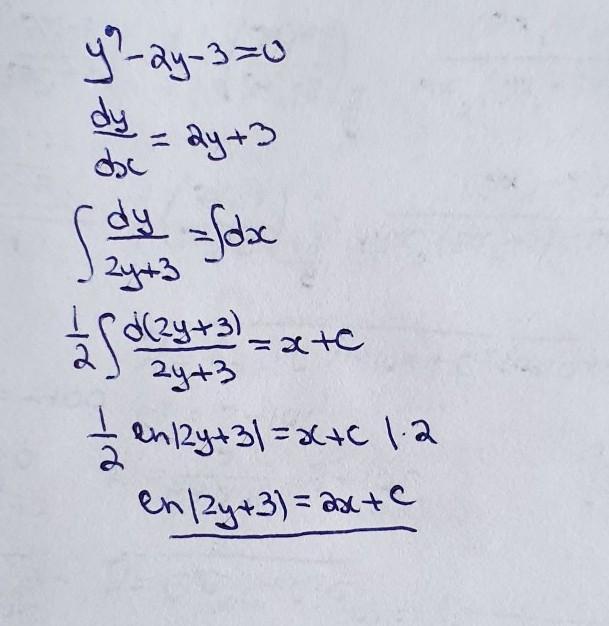 y' - 2y - 3 = 0
dy/dx = 2y + 3
∫ dy/(2y+3) = ∫ dx
1/2 ∫ d(2y+3)/(2y+3) = x + C
1/2 ln|2y+3| = x + C | · 2
ln|2y+3| = 2x + C